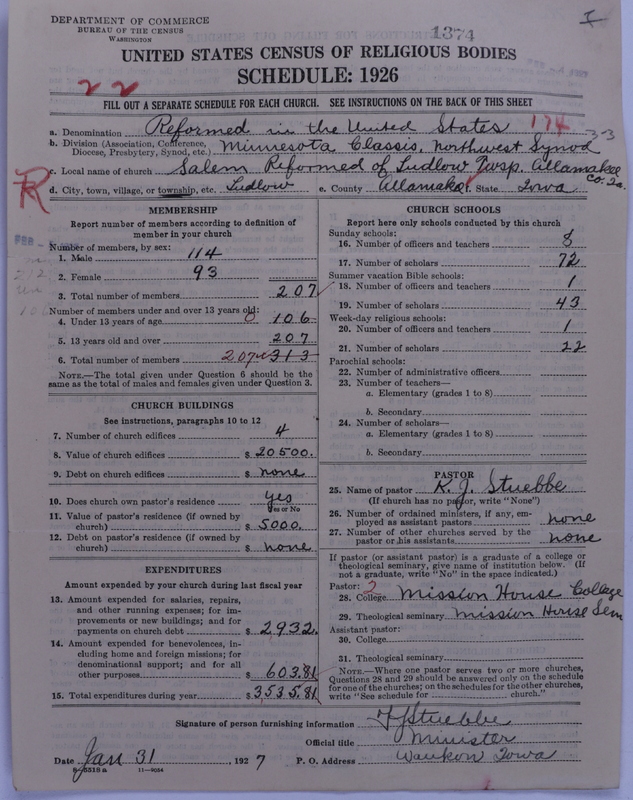 DEPARTMENT OF COMMERCE
BUREAU OF THE CENSUS
WASHINGTON
1374
I
UNITED STATES CENSUS OF RELIGIOUS BODIES
SCHEDULE: 1926
22
FILL OUT A SEPARATE SCHEDULE FOR EACH CHURCH. SEE INSTRUCTIONS ON THE BACK OF THIS SHEET
a. Denomination Reformed in the United States 174
3-3
b. Division (Association, Conference, Diocese, Presbytery, Synod, etc.) Minnesota Classis, Northwest Synod
c. Local name of church Salem Reformed of Ludlow Twsp. Allamakee Co. Ia.
R
d. City, town, village, or township, etc. Ludlow e. County Allamakee State Iowa
MEMBERSHIP
Report number of members according to definition of
member in your church
Number of members, by sex:
1. Male 114
2. Female 93
3. Total number of members 207
Number of members under and over 13 years old:
4. Under 13 years of age 0 106
5. 13 years old and over 207
6. Total number of members 207 313
NOTE.—The total given under Question 6 should be the
same as the total of males and females given under Question 3.
CHURCH BUILDINGS
See instructions, paragraphs 10 to 12
7. Number of church edifices 4
8. Value of church edifices $ 20500.
9. Debt on church edifices $ none
10. Does church own pastor's residence yes
Yes or No
11. Value of pastor's residence (if owned by
church) $ 5000.
12. Debt on pastor's residence (if owned by
church) $ none
EXPENDITURES
Amount expended by your church during last fiscal year
13. Amount expended for salaries, repairs,
and other running expenses; for im-
provements or new buildings; and for
payments on church debt $ 2932.
14. Amount expended for benevolences, in-
cluding home and foreign missions; for
denominational support; and for all
other purposes $ 603.81
15. Total expenditures during year $ 3535.81
CHURCH SCHOOLS
Report here only schools conducted by this church
Sunday schools:
16. Number of officers and teachers 8
17. Number of scholars 72
Summer vacation Bible schools:
18. Number of officers and teachers 1
19. Number of scholars 43
Week-day religious schools:
20. Number of officers and teachers 1
21. Number of scholars 22
Parochial schools:
22. Number of administrative officers
23. Number of teachers—
a. Elementary (grades 1 to 8)
b. Secondary
24. Number of scholars—
a. Elementary (grades 1 to 8)
b. Secondary
PASTOR
25. Name of pastor K. J. Stuebbe
(If church has no pastor, write "None")
26. Number of ordained ministers, if any, em-
ployed as assistant pastors none
27. Number of other churches served by the
pastor or his assistants none
If pastor (or assistant pastor) is a graduate of a college or
theological seminary, give name of institution below. (If
not a graduate, write "No" in the space indicated.)
Pastor: 2
28. College Mission House College
29. Theological seminary Mission House Sem
Assistant pastor:
30. College
31. Theological seminary
NOTE.—Where one pastor serves two or more churches,
Questions 28 and 29 should be answered only on the schedule
for one of the churches; on the schedules for the other churches,
write "See schedule for church."
Signature of person furnishing information Stuebbe
Official title Minister
Date Jan 31, 1927 P. O. Address Waukon Iowa
8-5518a 11—9034